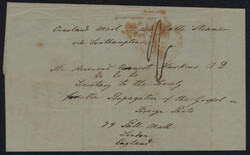 Overland Mail Steamer
via Southampton
The Reverend Ernest Hawkins B D
&c &c &c
Secretary to the Society
for the Propagation of the Gospel in
Foreign Parts
79 Pall Mall
London
England